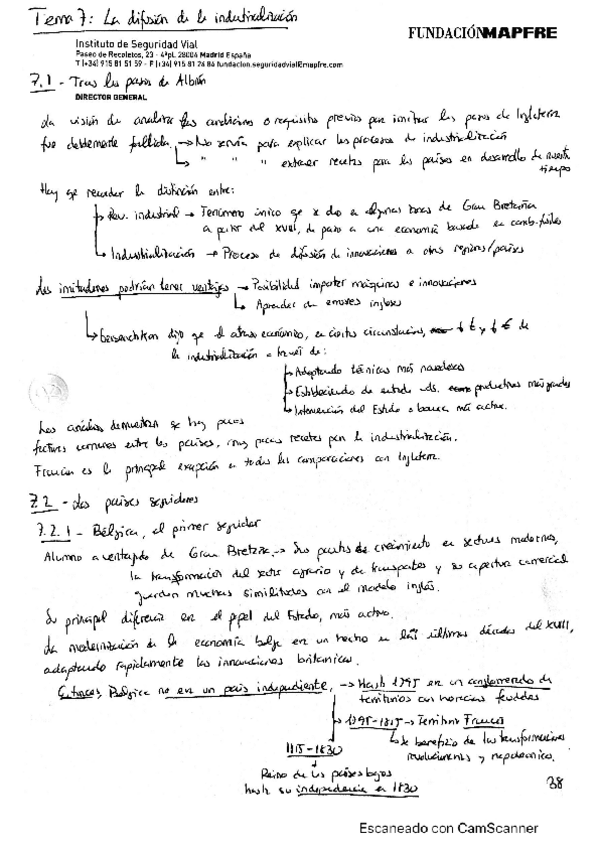 Tema 7: La difusión de la industrialización
FUNDACIÓNMAPFRE
Instituto de Seguridad Vial
Paseo de Recoletos, 23 - 4ªpl. 28004 Madrid España
T (+34) 915 81 51 59 - F (+34) 915 81 24 84 fundacion.seguridadvial@mapfre.com
7.1 - Tras los pasos de Albión
DIRECTOR GENERAL
La visión de analizar las condiciones o requisitos previos para imitar los pasos de Inglaterra
fue doblemente fallida. → No servía para explicar los procesos de industrialización
→ " " " extraer recetas para los países en desarrollo de nuestro
tiempo
Hay que recordar la distinción entre:
→ Rev. industrial → Fenómeno único que se dio en algunas zonas de Gran Bretaña
a partir del XVIII, de paso a una economía basada en comb. fósiles
→ Industrialización → Proceso de difusión de innovaciones a otras regiones/países
Los imitadores podrían tener ventajas → Posibilidad importar máquinas e innovaciones
→ Aprender de errores ingleses
→ Gerschenkron dijo que el atraso económico, en ciertas circunstancias, de
la industrialización a través de:
→ Adoptando técnicas más novedosas
→ Estableciendo de entrada uds. productivas más grandes
→ Intervención del Estado o banca más activa.
Los análisis demuestran que hay pocos
factores comunes entre los países, muy pocas recetas para la industrialización.
Francia es la principal excepción en todas las comparaciones con Inglaterra.
7.2 - Los países seguidores
7.2.1 - Bélgica, el primer seguidor
Alumno aventajado de Gran Bretaña → Sus pautas de crecimiento en sectores modernos,
la transformación del sector agrario y de transportes y su apertura comercial
guardan muchas similitudes con el modelo inglés.
Su principal diferencia era el papel del Estado, más activo.
La modernización de la economía belga era un hecho en las últimas décadas del XVIII,
adaptando rapidamente las innovaciones britanicas.
Entonces, Bélgica no era un país independiente, → Hasta 1795 era un conglomerado de
territorios con herencias feudales
→ 1795-1815 → Territorio Francés
→ Se beneficia de las transformaciones
revolucionarias y napoleonica.
1815-1830
Reino de los países bajos
hasta su independencia en 1830
38
Escaneado con CamScanner